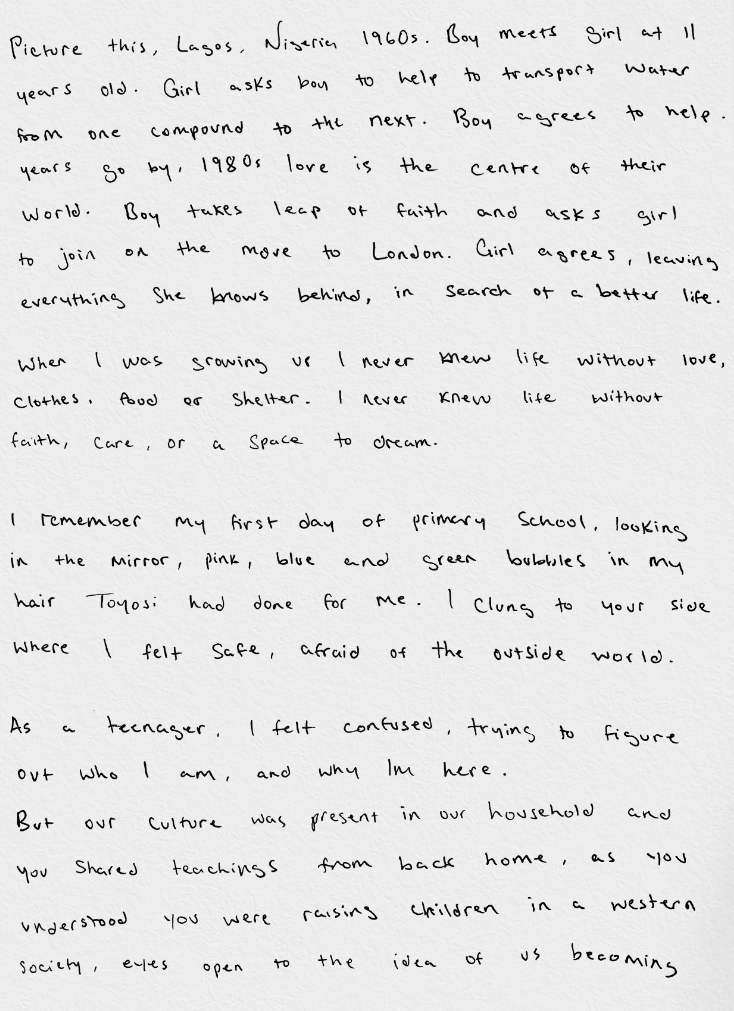 Picture this, Lagos, Nigeria 1960s. Boy meets girl at 11
years old. Girl asks boy to help to transport water
from one compound to the next. Boy agrees to help.
years go by, 1980s love is the centre of their
world. Boy takes leap of faith and asks girl
to join on the move to London. Girl agrees, leaving
everything she knows behind, in search of a better life.
When I was growing up I never knew life without love,
clothes, food or shelter. I never knew life without
faith, care, or a space to dream.
I remember my first day of primary school, looking
in the mirror, pink, blue and green bubbles in my
hair Toyosi had done for me. I clung to your side
where I felt safe, afraid of the outside world.
As a teenager, I felt confused, trying to figure
out who I am, and why Im here.
But our culture was present in our household and
you shared teachings from back home, as you
understood you were raising children in a western
society, eyes open to the idea of us becoming